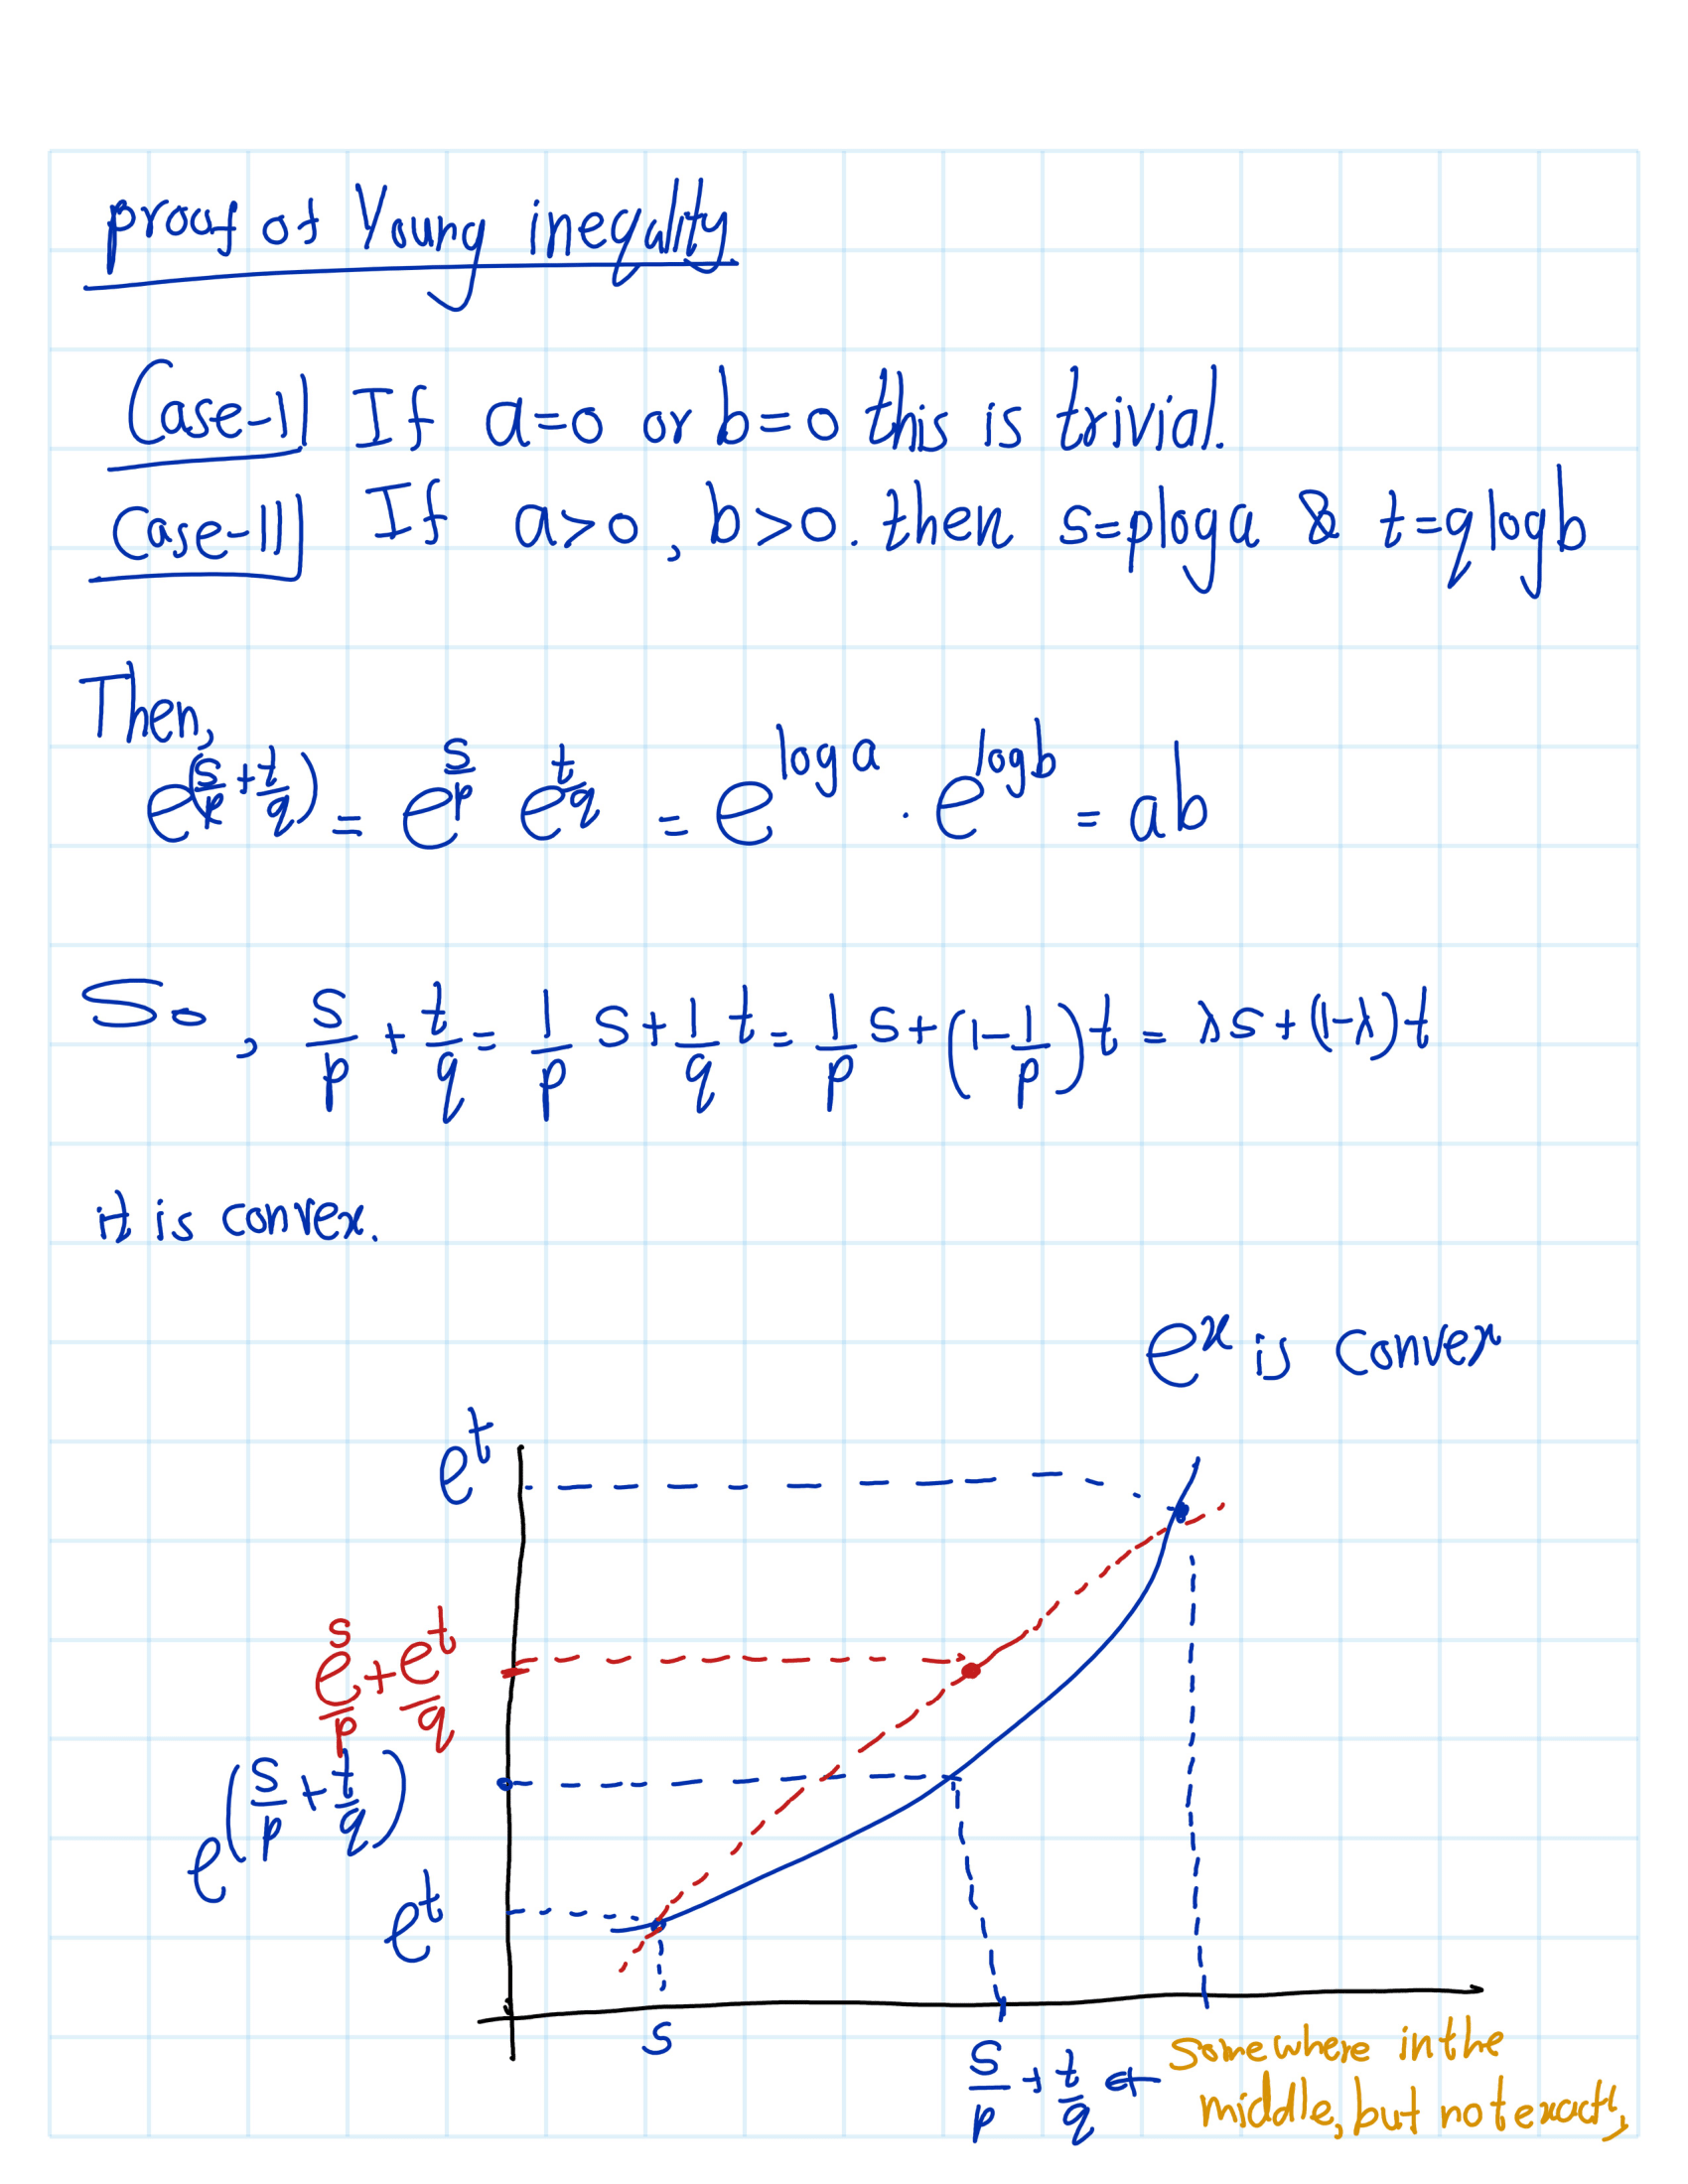 proof of Young inequality
Case-I If a=0 or b=0 this is trivial.
Case-II If a>0, b>0. then s=plog a & t=qlogb
Then,
e^(s/p + t/q) = e^(s/p) e^(t/q) = e^(log a) . e^(log b) = ab
So, s/p + t/q = 1/p s + 1/q t = 1/p s + (1 - 1/p) t = λs + (1-λ) t
it is convex.
e^x is convex
e^t
e^s/p + e^t/q
e^(s/p + t/q)
e^t
s
s/p + t/q ← Somewhere in the
middle, but not exactly